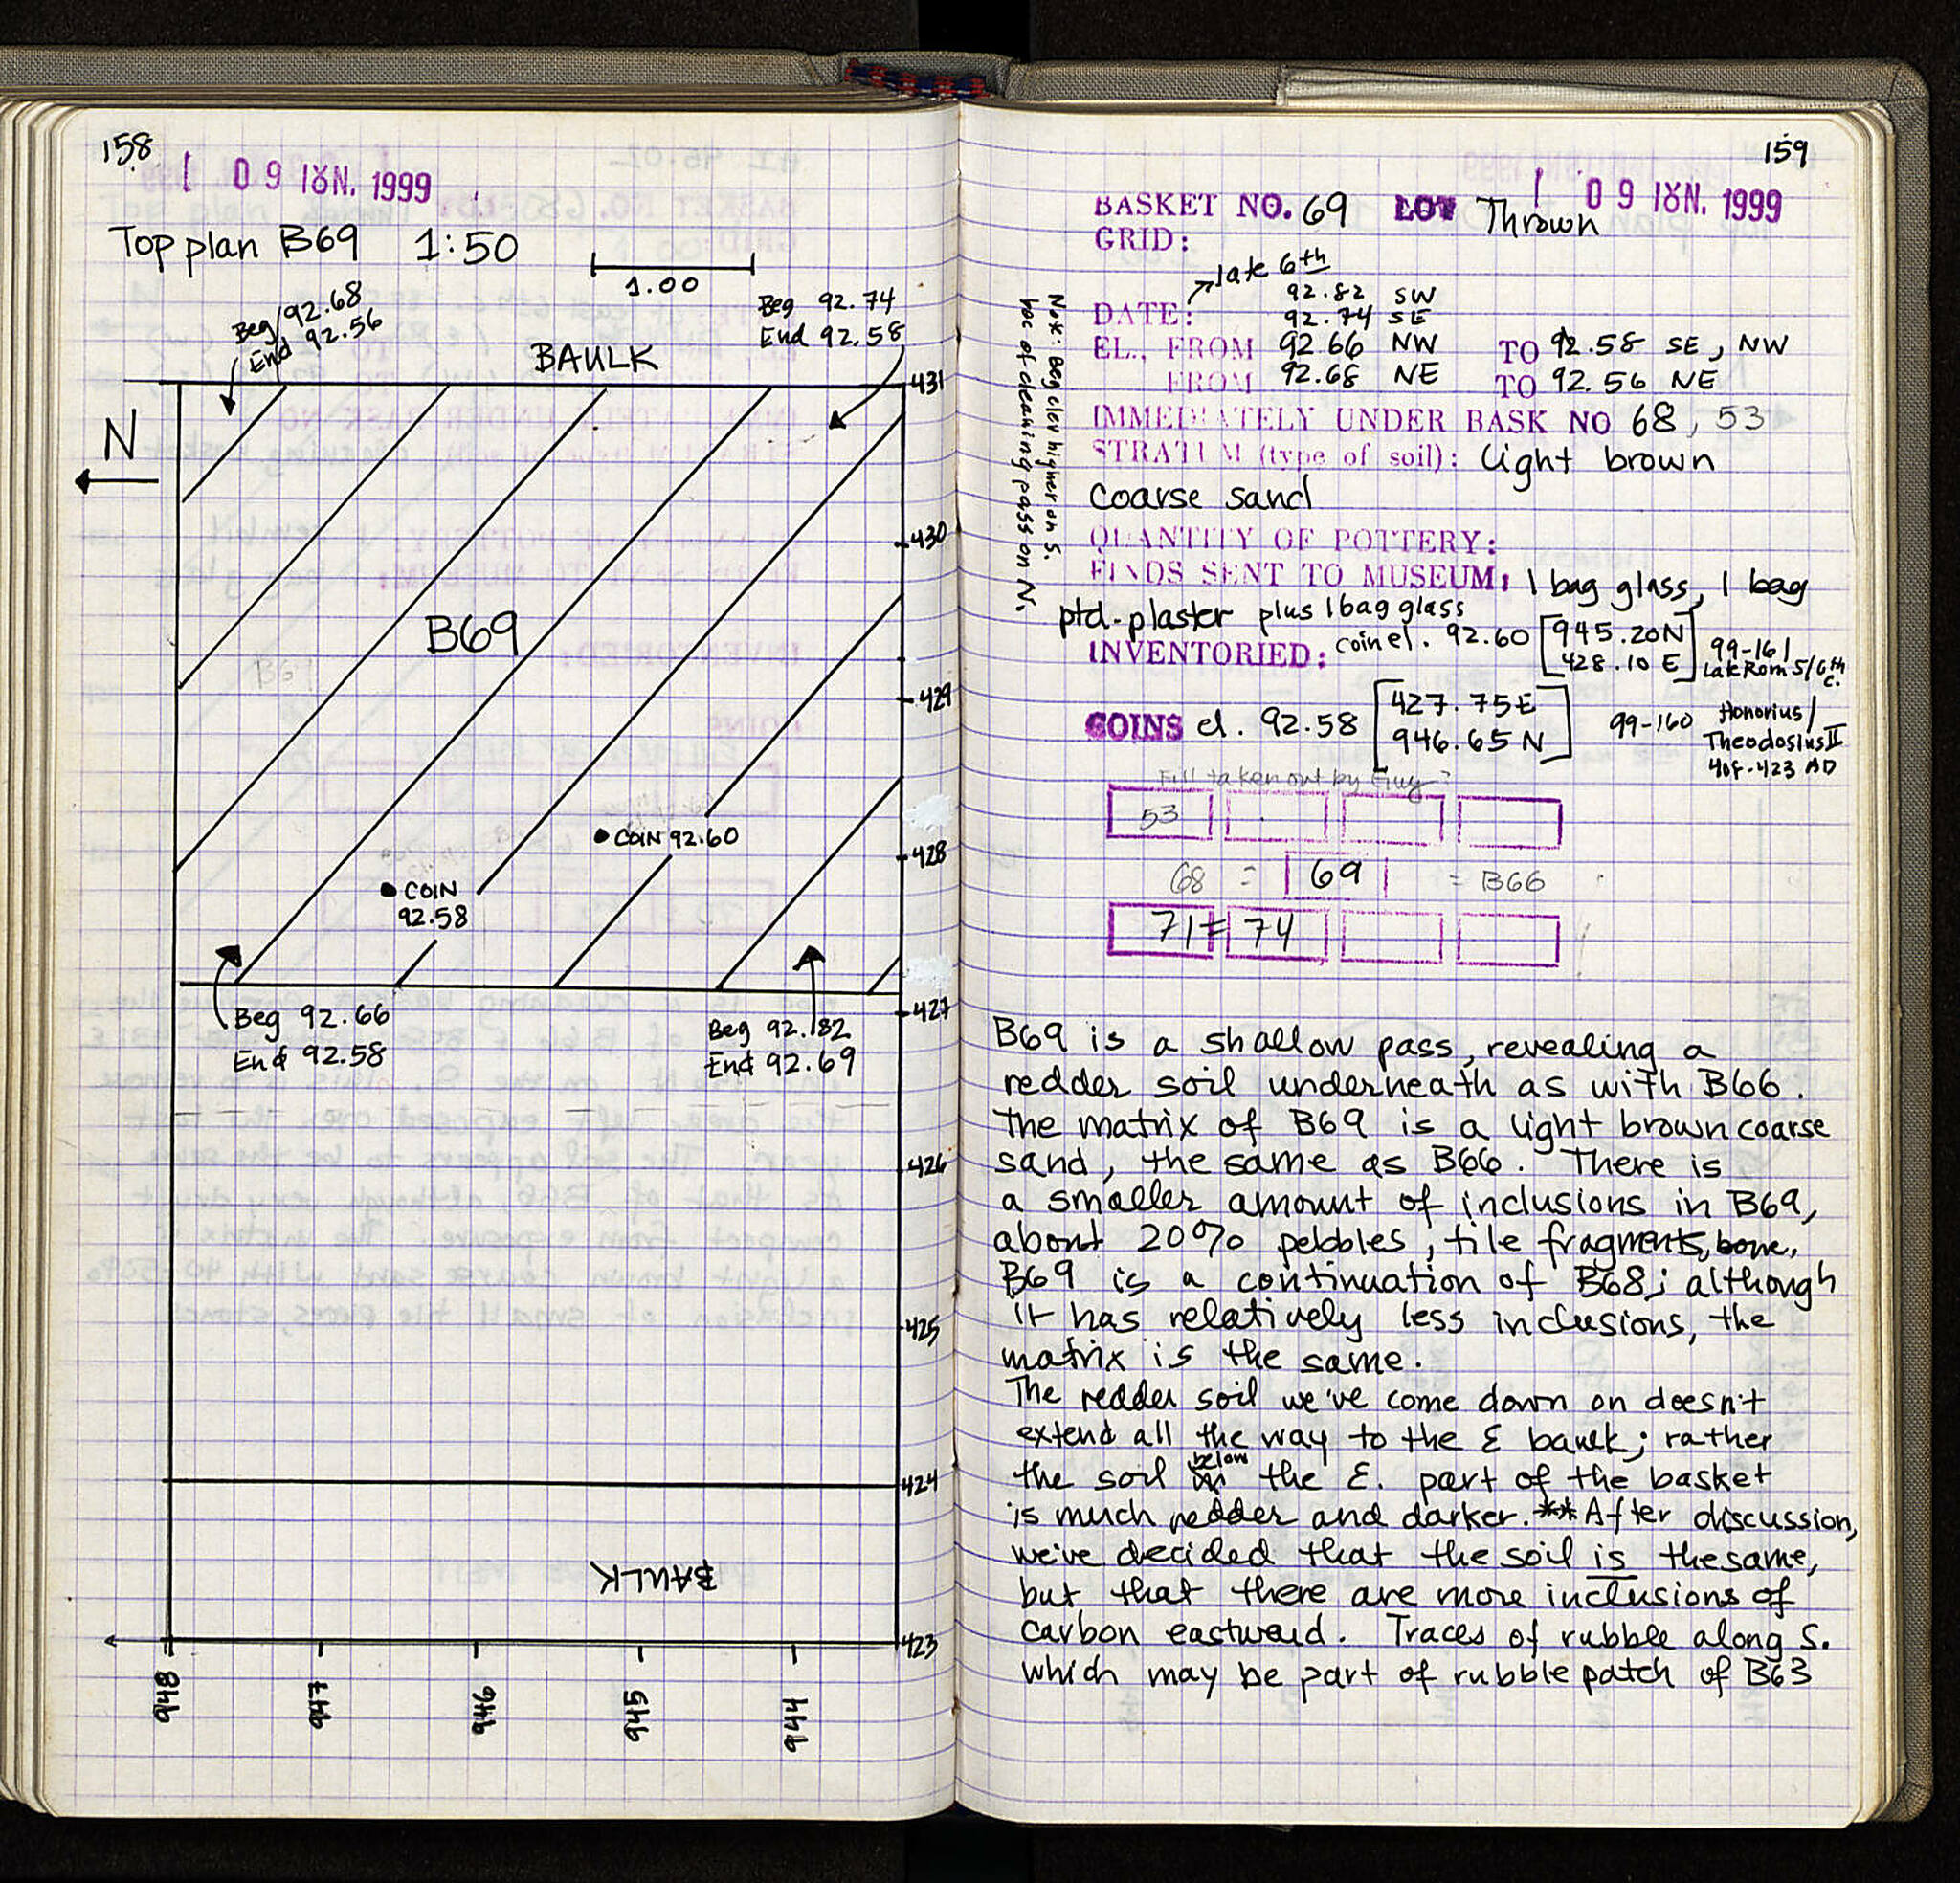 158
1 09 ΙΟΥΝ. 1999
Top plan B69 1:50
1.00
Beg 92.68
End 92.56
Beg 92.74
End 92.58
BAULK
N
431
430
B69
429
COIN 92.60
428
COIN
92.58
427
Beg 92.66
End 92.58
Beg 92.82
End 92.69
426
425
424
BAULK
423
948
947
946
945
944
159
1 09 ΙΟΥΝ. 1999
BASKET NO. 69 LOT Thrown
GRID:
late 6th
DATE:
92.82 SW
92.74 SE
EL., FROM 92.66 NW TO 92.58 SE, NW
FROM 92.68 NE TO 92.56 NE
Note: Beg elev higher on S.
bec of cleaning pass on N.
IMMEDIATELY UNDER BASK NO 68, 53
STRATUM (type of soil): Light brown
coarse sand
QUANTITY OF POTTERY:
FINDS SENT TO MUSEUM: 1 bag glass, 1 bag
ptd. plaster plus 1 bag glass
INVENTORIED: coin el. 92.60 [945.20N 428.10 E] 99-161 Late Rom 5/6th c.
COINS el. 92.58 [427.75E 946.65 N] 99-160 Honorius/ Theodosius II 408-423 AD
Fill taken out by
53
68 = 69 = B66
71 = 74
B69 is a shallow pass, revealing a
redder soil underneath as with B66.
The matrix of B69 is a light brown coarse
sand, the same as B66. There is
a smaller amount of inclusions in B69,
about 20% pebbles, tile fragments, bone.
B69 is a continuation of B68; although
it has relatively less inclusions, the
matrix is the same.
The redder soil we've come down on doesn't
extend all the way to the E baulk; rather
the soil below the E. part of the basket
is much redder and darker. ** After discussion,
we've decided that the soil is the same,
but that there are more inclusions of
carbon eastward. Traces of rubble along S.
which may be part of rubble patch of B63